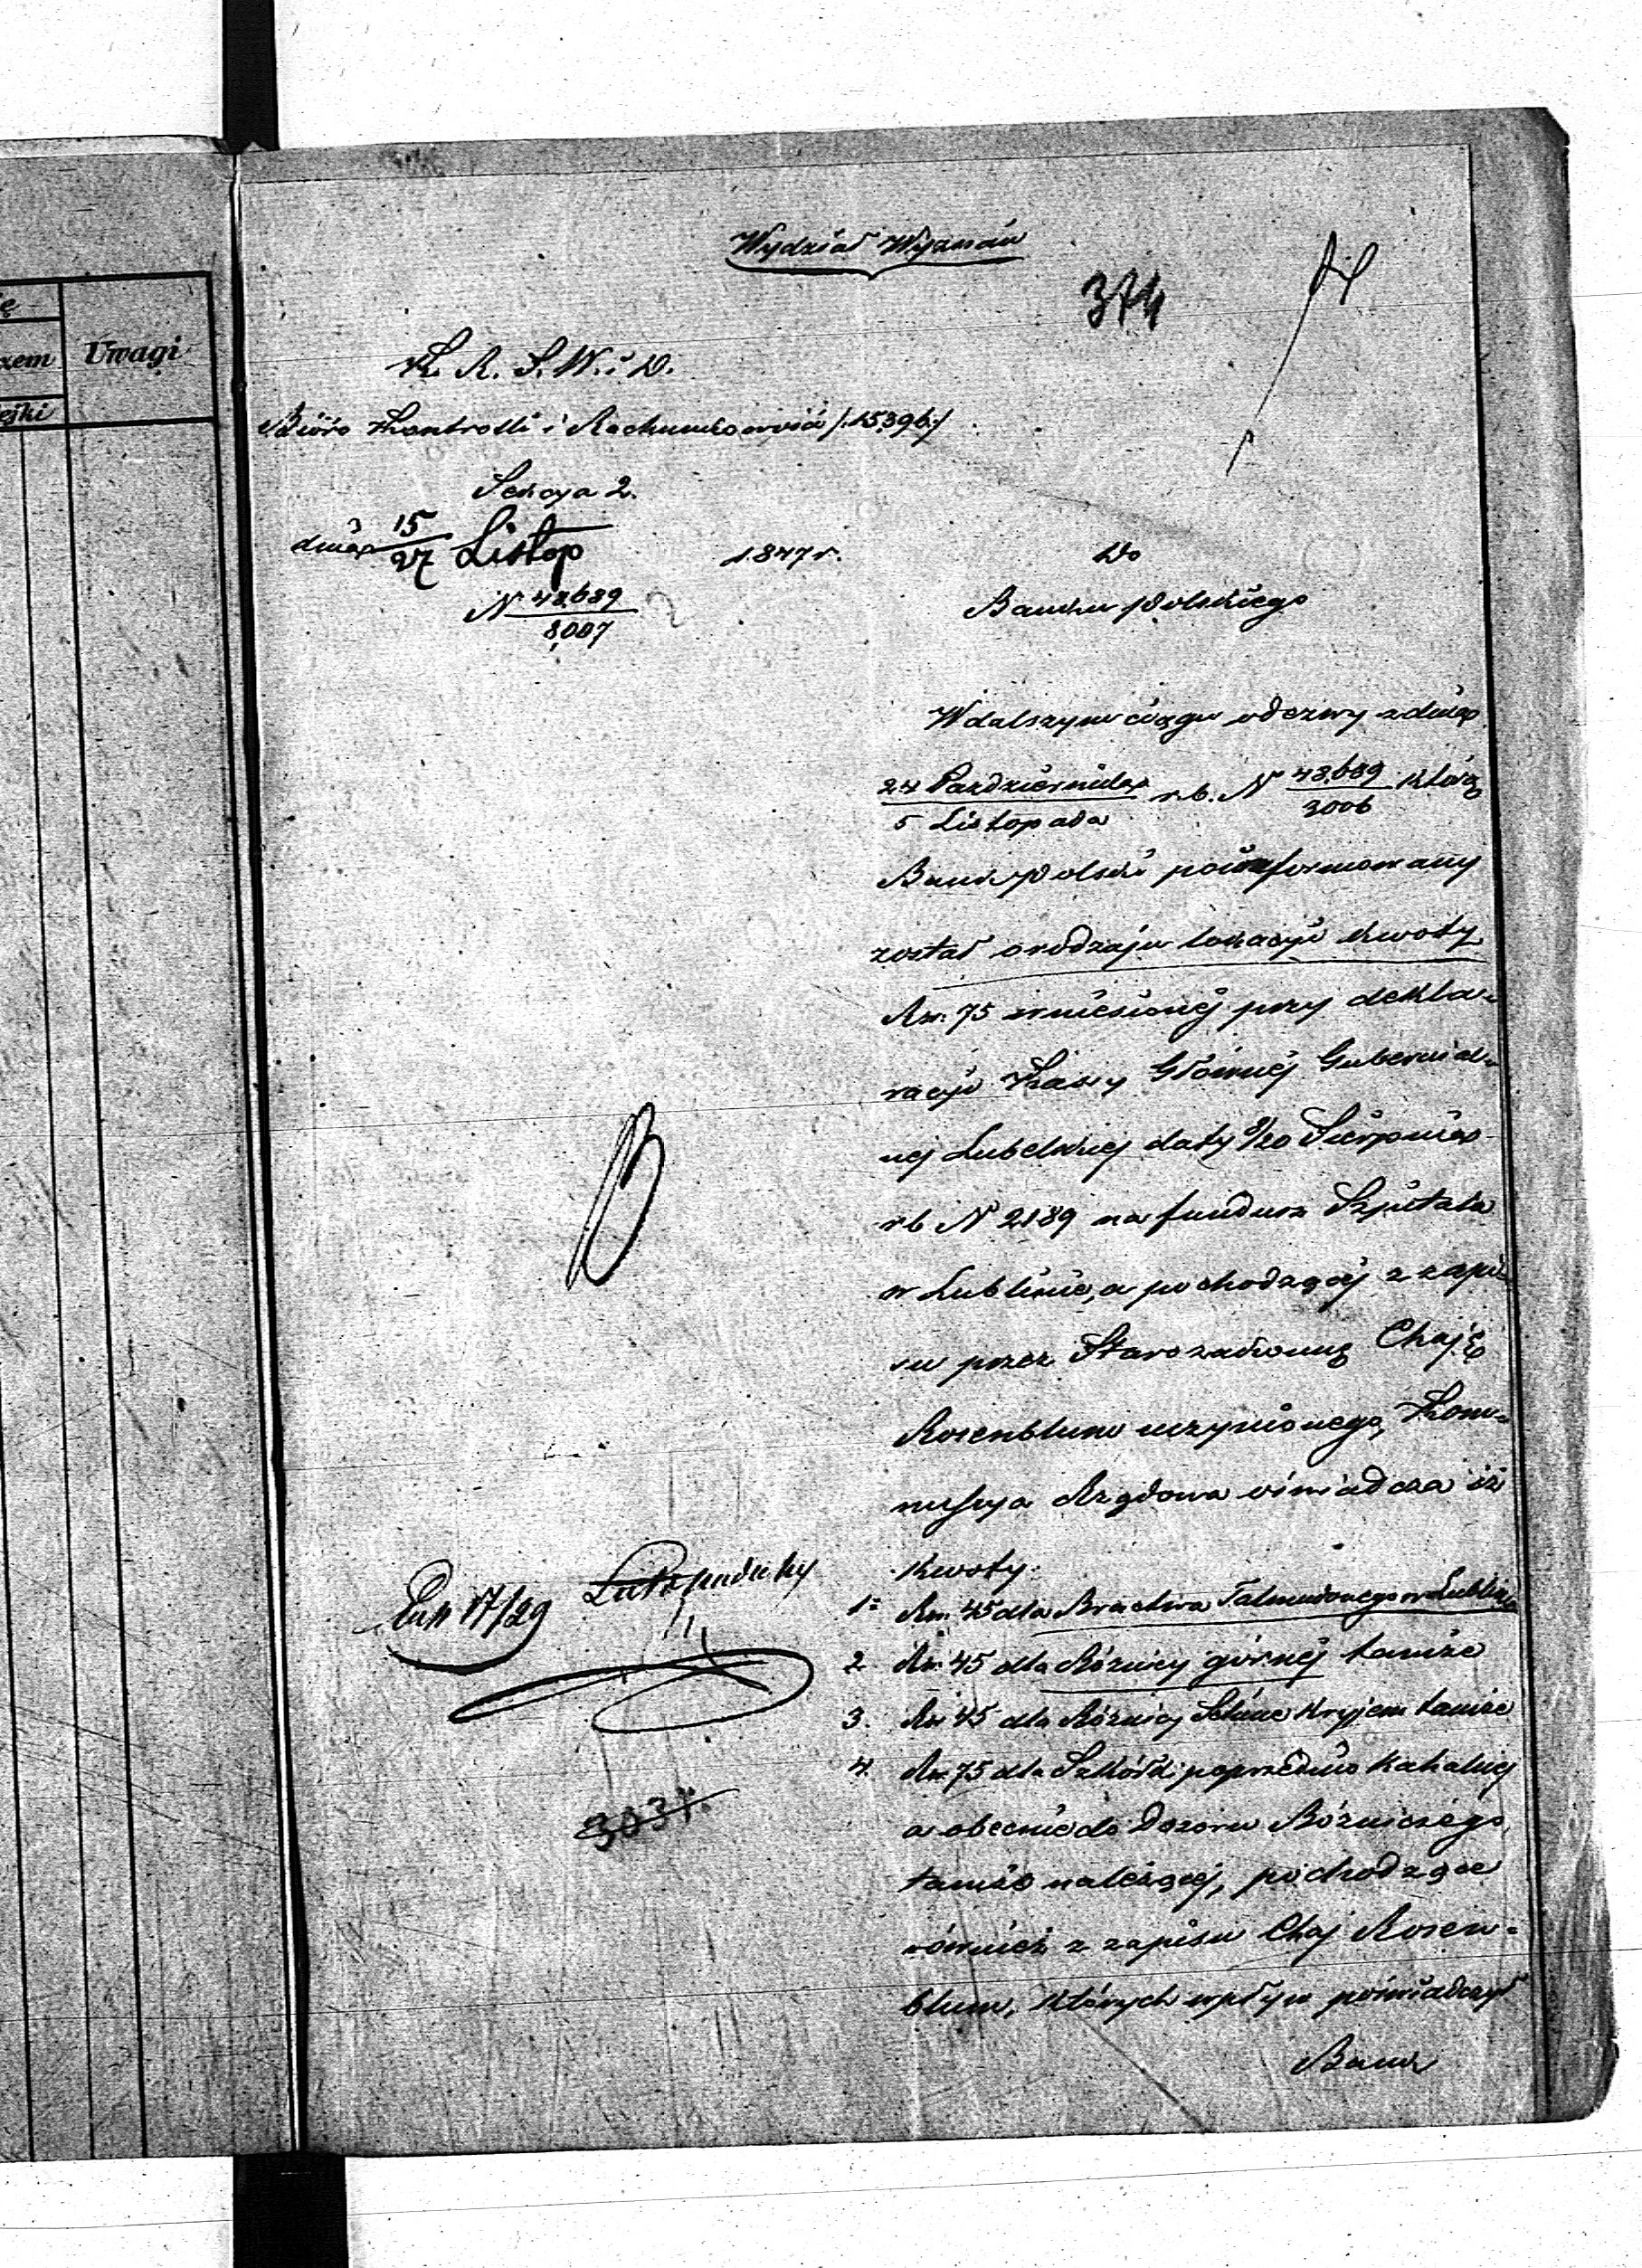 ę
zem
Uwagi
ejki
Wydział Wyznań
374
K. R. S. W. i D.
Bióro Kontrolli i Rachunkowości /:15396:/
Sekcya 2.
dnia 15/27 Listop 1847 r.
N 48689/8,007
Do
Banku Polskiego
W dalszym ciągu odezwy z dnia
24 Października/5 Listopada r.b. N 48,689/3006 którą
Bank Polski poinformowany
został o rodzaju lokacyi kwoty
Rsr. 75 wniesionej przy dekla-
racyi Kassy Głównej Gubernial-
nej Lubelskiej daty 8/20 Sierpnia
rb N 2189 na fundusz Szpitala
w Lublinie, a pochodzącej z zapi-
su przez Starozakonną Chaję
Rosenblum uczynionego, Kom-
missya Rządowa oświadcza iż
kwoty:
1= Rsr. 45 dla Bractwa Talmudowego w Lublinie
2. Rsr. 45 dla Bóżnicy górnej tamże
3. Rsr 45 dla Bóżnicy tamże
4. Rsr. 75 dla Szkółki poprzednio kahalnej
a obecnie do Dozoru Bóżniczego
tamże należącej, pochodzące
również z zapisu Chaj Rosen-
blum, których wpływ poświadczył
Bank
17/29
3037.